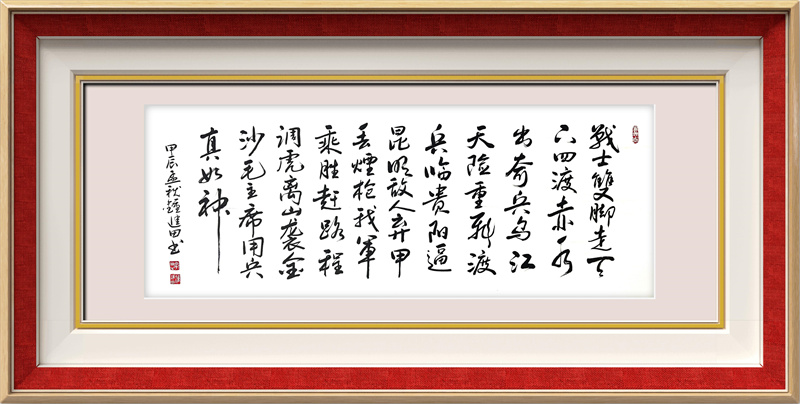 戰士雙脚走天
下四渡赤水
出奇兵乌江
天险重飛渡
兵临貴阳逼
昆明敌人弃甲
丢煙枪我軍
乘胜赶路程
调虎离山袭金
沙毛主席用兵
真如神
甲辰孟秋鐘進田书